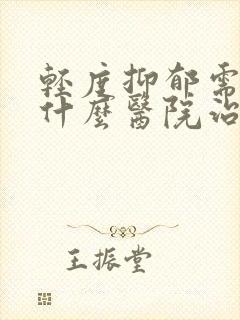 輕度抑郁需
什麼醫院治
王振堂